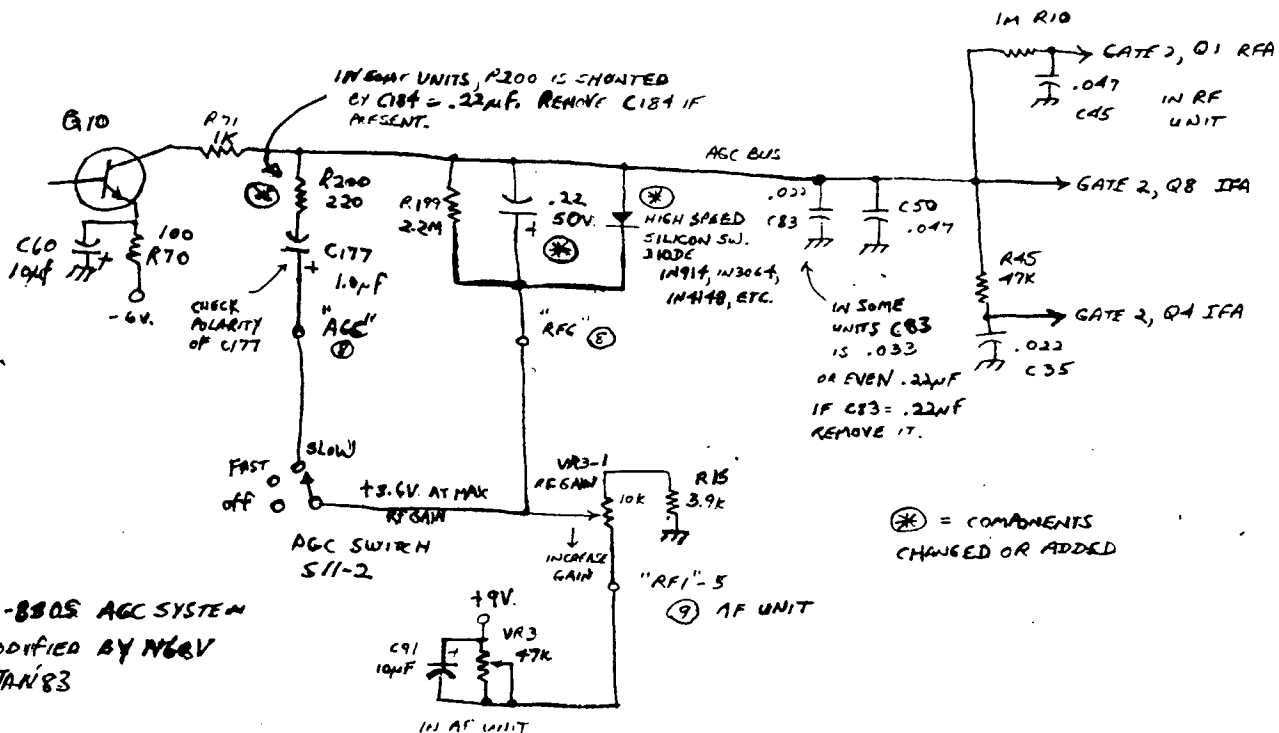 1M R10
GATE 2, Q1 RFA
.047
C45
IN RF
UNIT
IN SOME UNITS, R200 IS SHUNTED
BY C184 = .22µF. REMOVE C184 IF
PRESENT.
Q10
R71
1K
AGC BUS
R200
220
R199
2.2M
.22
50V.
+
HIGH SPEED
SILICON SW.
DIODE
1N914, 1N3064,
1N4148, ETC.
.022
C83
C50
.047
GATE 2, Q8 IFA
C60
10µf
+
100
R70
-6V.
C177
+
1.0µF
CHECK
POLARITY
OF C177
"AGC"
8
"RFG"
8
IN SOME
UNITS C83
IS .033
OR EVEN .22µF
IF C83 = .22µF
REMOVE IT.
R45
47K
GATE 2, Q4 IFA
.022
C35
SLOW
FAST
OFF
+3.6V. AT MAX
RF GAIN
AGC SWITCH
S11-2
VR3-1
RF GAIN
10K
R15
3.9K
INCREASE
GAIN
"RF1"-5
9 AF UNIT
* = COMPONENTS
CHANGED OR ADDED
-830S AGC SYSTEM
MODIFIED BY N6BV
JAN'83
+9V.
C91
10µF
+
VR3
47K
IN AF UNIT